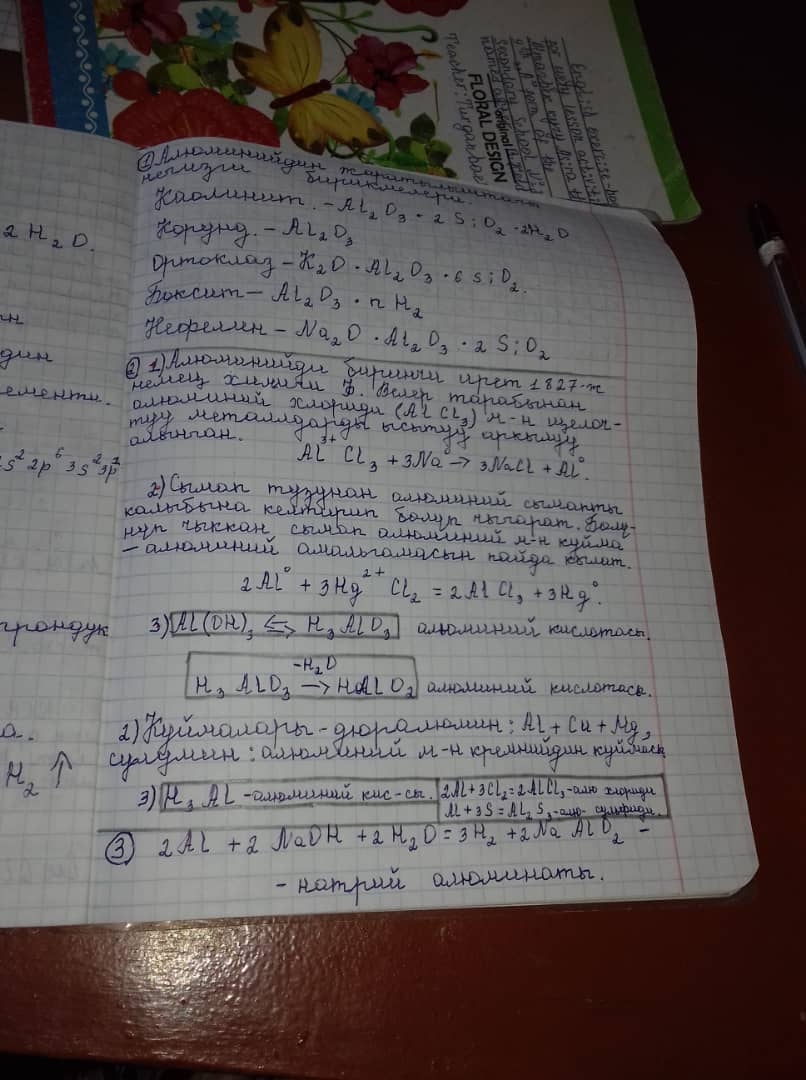 English exercise-boo
for every lesson activiti
FLORAL DESIGN
original
Teacher: Turganbae
① Алюминийдин жаратылыштагы
негизги бирикмелери.
Каолинит. – Al₂O₃ · 2 SiO₂ · 2H₂O
Корунд. – Al₂O₃
Ортоклаз – K₂O · Al₂O₃ · 6 SiO₂.
Боксит – Al₂O₃ · n H₂
Нефелин – Na₂O · Al₂O₃ · 2 SiO₂
② 1) Алюминийди биринчи ирет 1827-ж
немец химиги Ф. Велер тарабынан
алюминий хлориди (AlCl₃) м-н щелоч-
туу металлдарды ысытуу аркылуу
алынган.
Al³⁺Cl₃ + 3Na⁰ → 3NaCl + Al⁰.
2) Сымап тузунан алюминий сымапты
калыбына келтирип бөлүп чыгарат. Бөлү-
нүп чыккан сымап алюминий м-н куйма
– алюминий амальгамасын пайда кылат.
2Al⁰ + 3Hg²⁺Cl₂ = 2AlCl₃ + 3Hg⁰.
3) Al(OH)₃ ⇆ H₃AlO₃ алюминий кислотасы.
–H₂O
H₃AlO₃ → HAlO₂ алюминий кислотасы.
2) Куймалары – дюралюмин: Al + Cu + Mg,
силумин: алюминий м-н кремнийдин куймасы
3) H₃Al – алюминий кис-сы. 2Al + 3Cl₂ = 2AlCl₃ – алю хлориди
Al + 3S = Al₂S₃ – алю- сульфиди.
③ 2Al + 2NaOH + 2H₂O = 3H₂ + 2NaAlO₂ –
– натрий алюминаты.
2H₂O.
ин
дин
ементи.
s²2p⁶3s²3p¹
трондук
а.
H₂ ↑